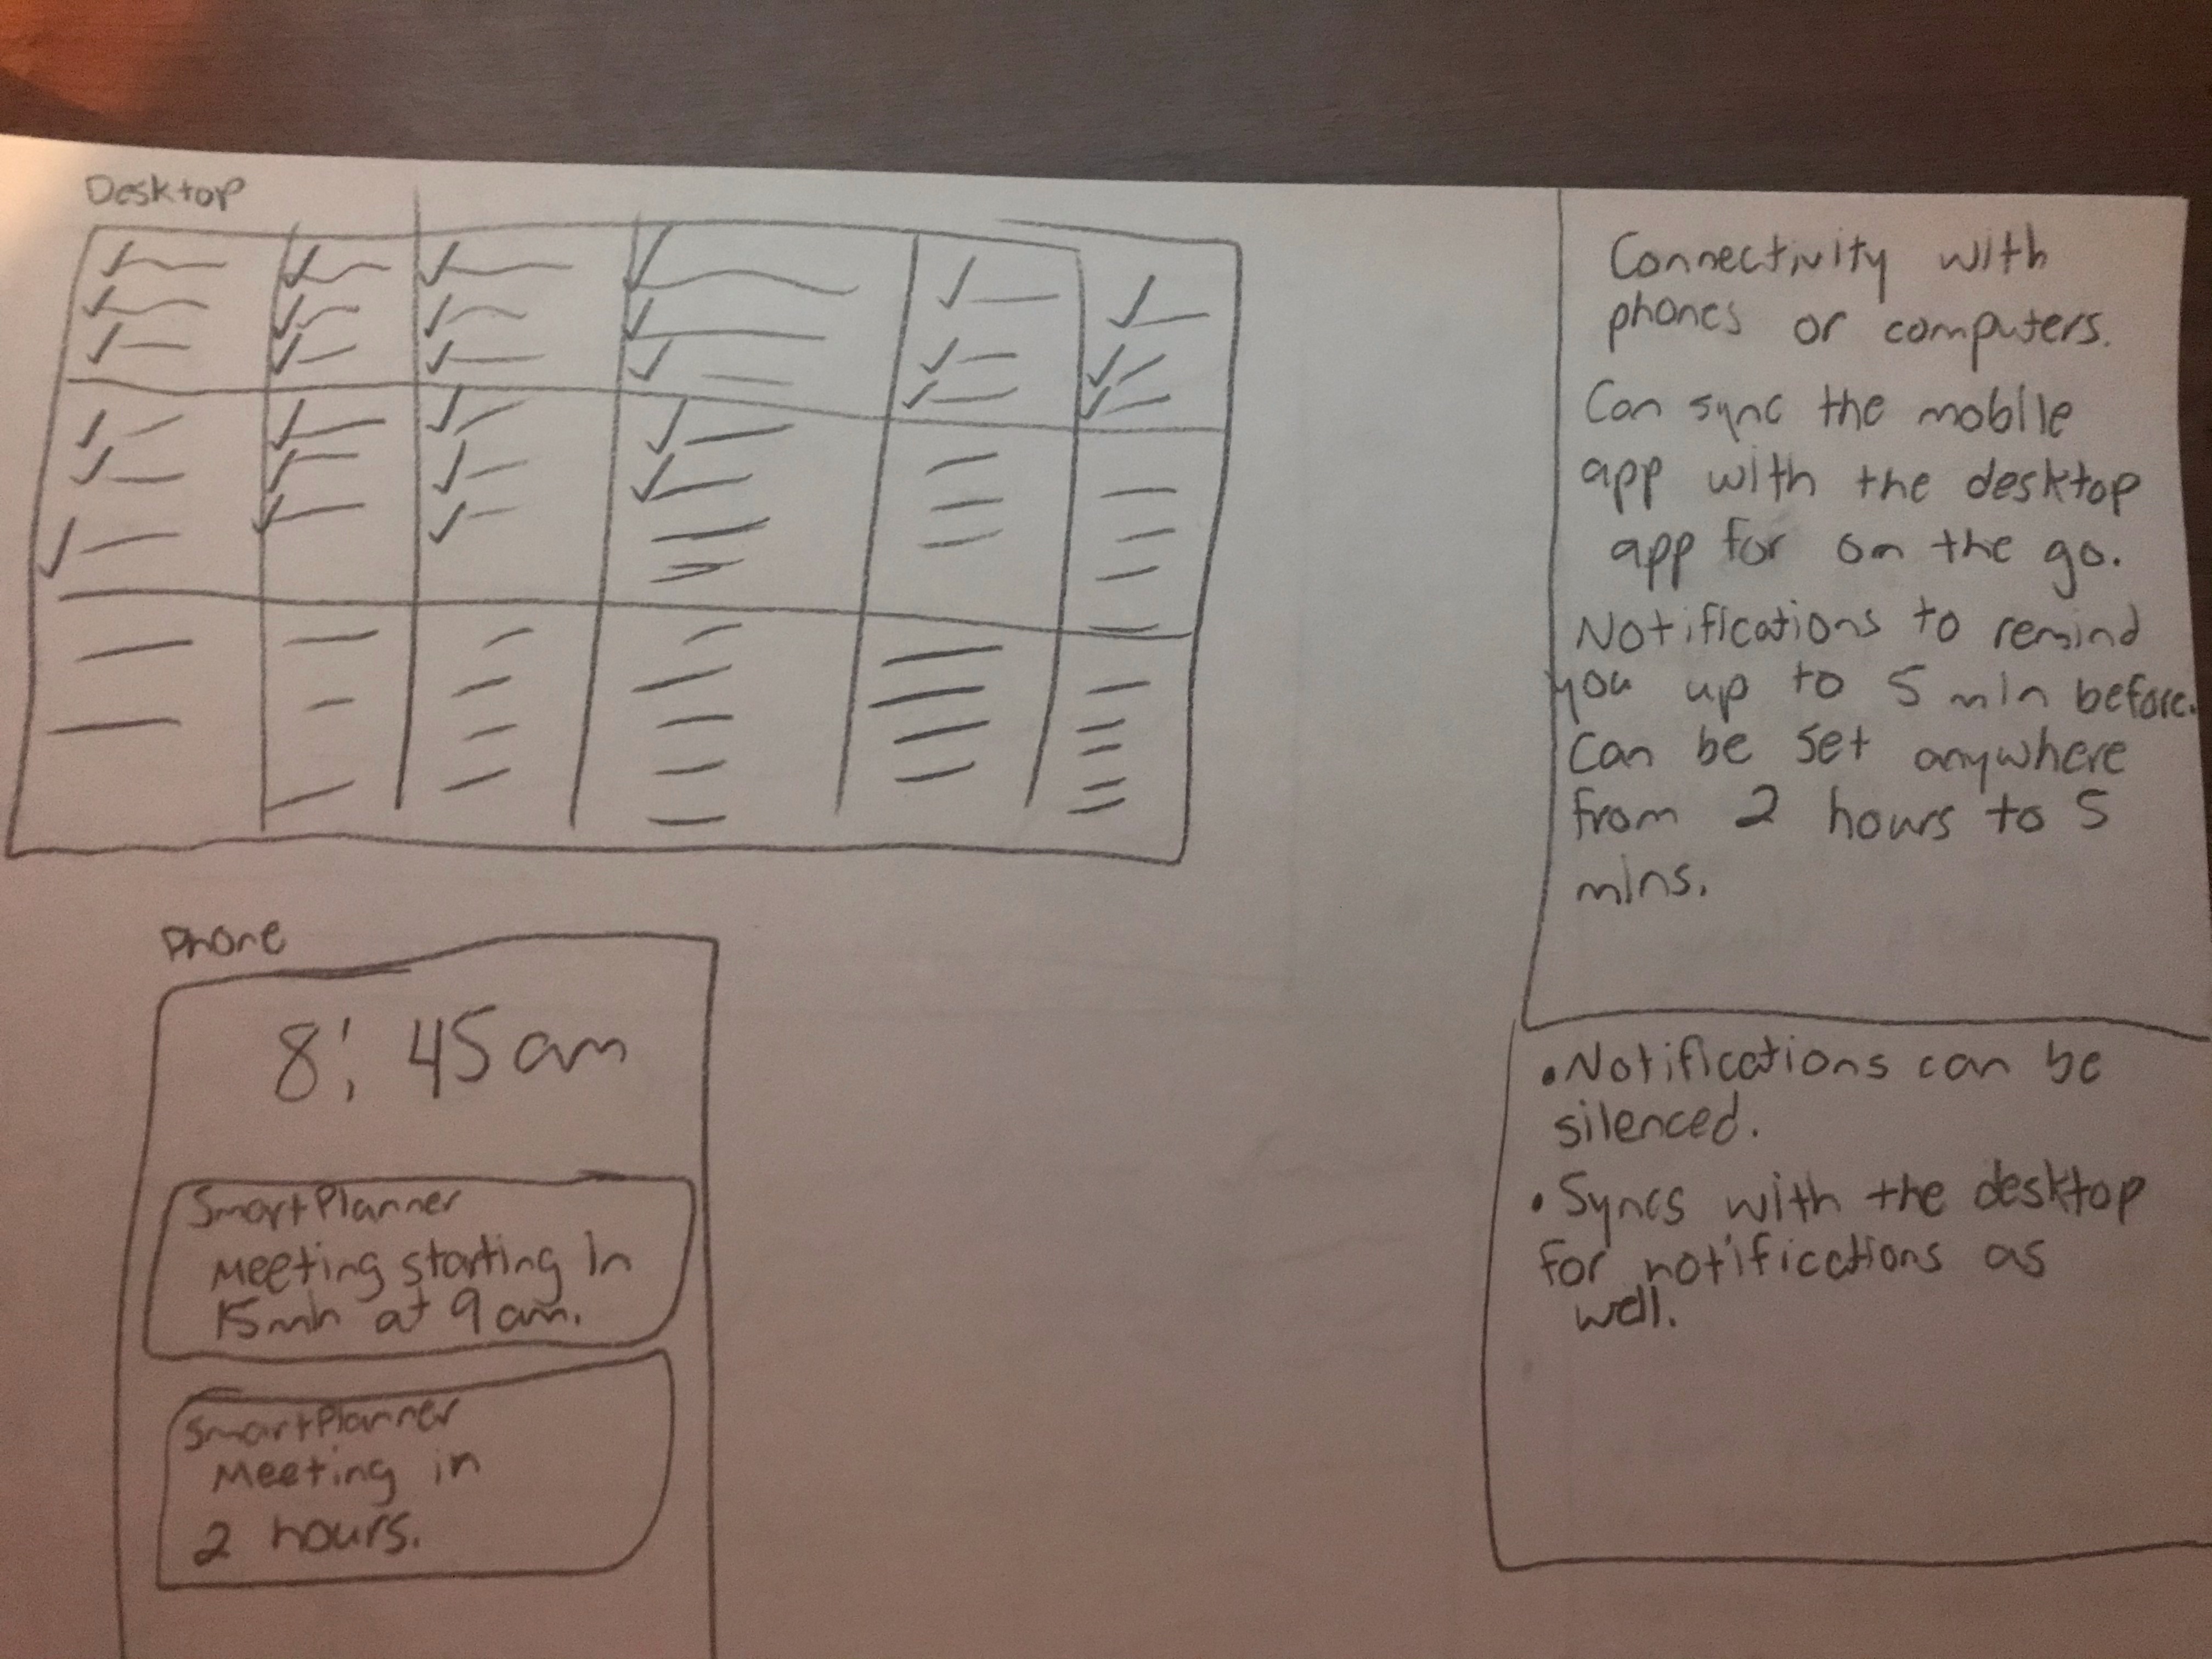 Desktop
Connectivity with
phones or computers.
Can sync the mobile
app with the desktop
app for on the go.
Notifications to remind
you up to 5 min before.
Can be set anywhere
from 2 hours to 5
mins.
Phone
8:45am
SmartPlanner
Meeting starting in
15min at 9am.
SmartPlanner
Meeting in
2 hours.
•Notifications can be
silenced.
•Syncs with the desktop
for notifications as
well.